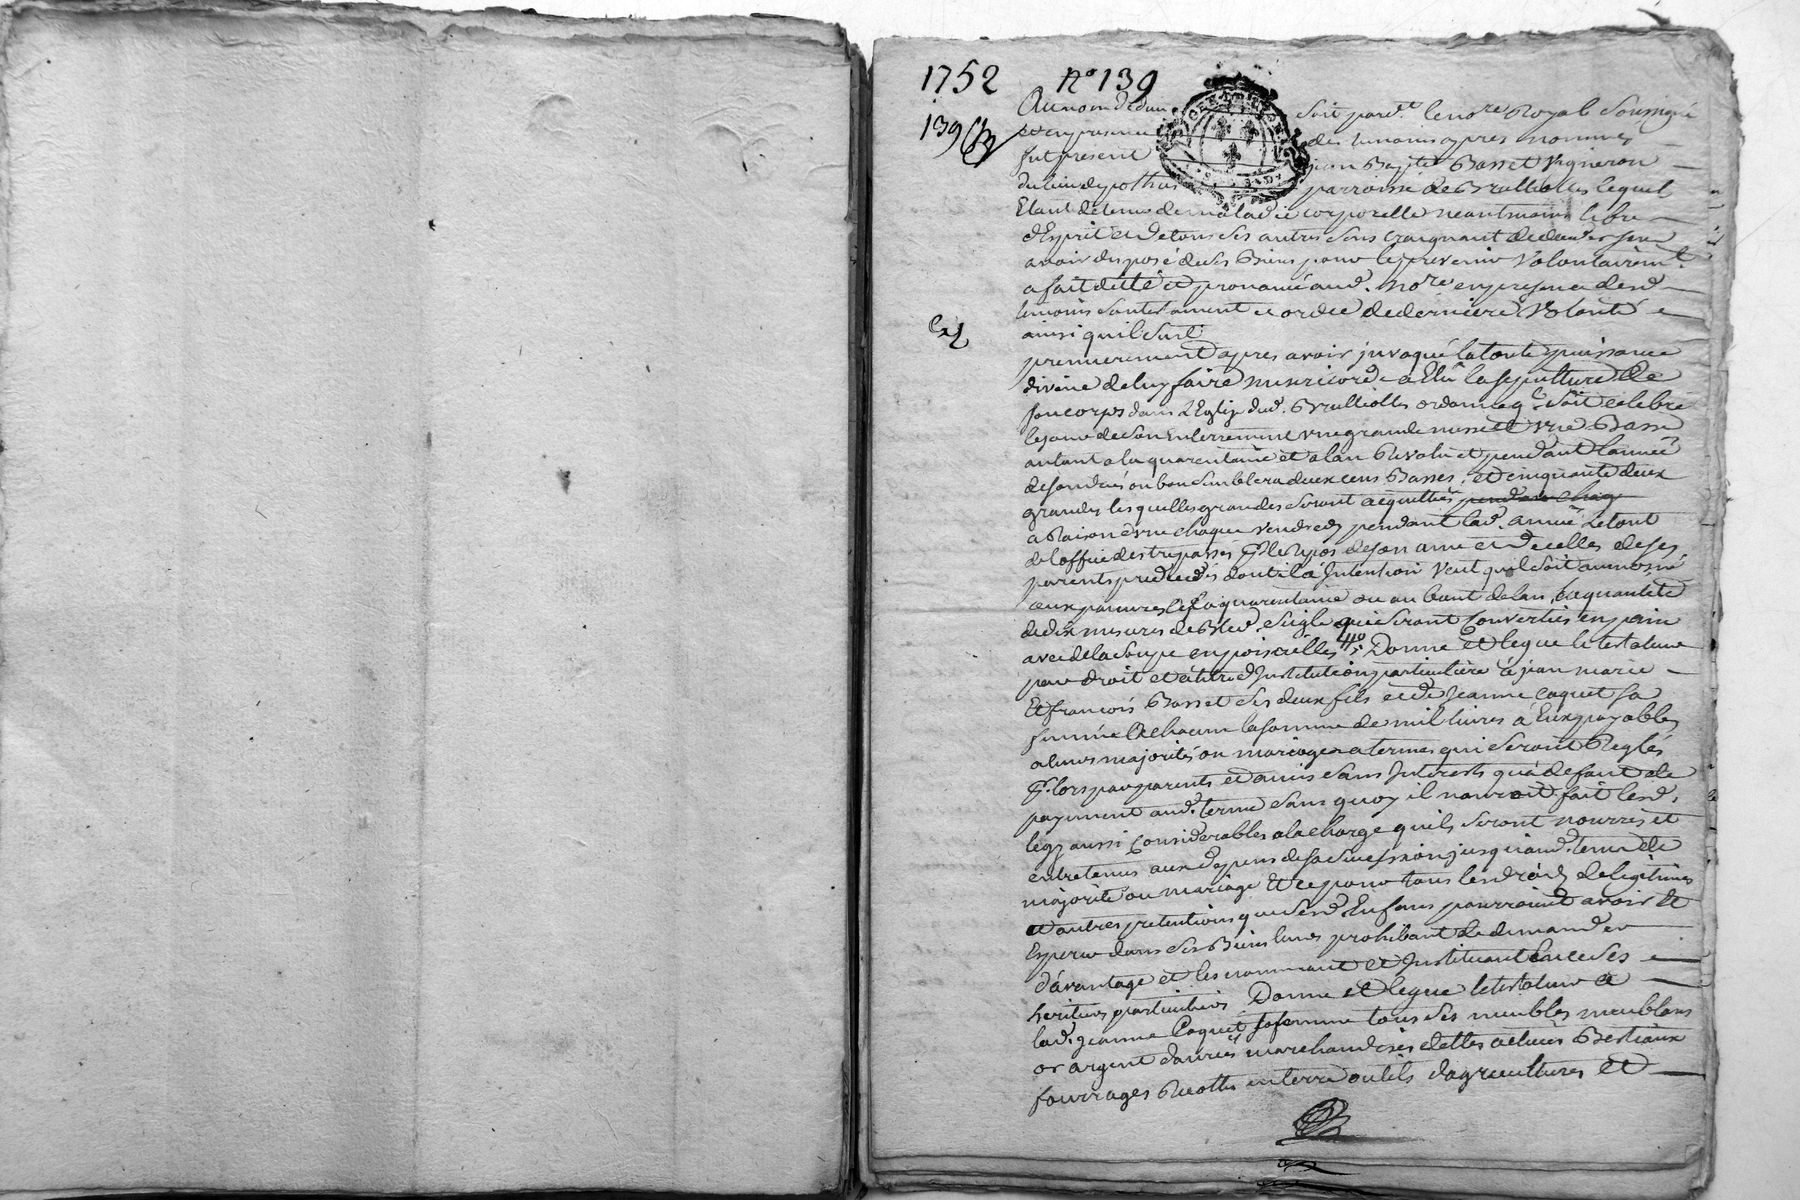 1752 n° 139
139
Au nom de dieu soit par dt. le nore Royal Soussigné
et en presence des temoins apres nommes
fut present jean Baptte Basset Vigneron
du lieu de pothus parroisse de Brullioles lequel
Etant detenu de maladie corporelle neantmoins libre
d'Esprit et de tous ses autres sens craignant de deceder sans
avoir disposé de ses Biens pour le prevenir Volontairemt.
a fait ditté et prononcé aud. nore en presence desd.
temoins son testament et ordre de derniere Volonté
ainsi quil suit
Ex
premierement apres avoir invoqué la toute puissance
divine de luy faire misericorde a Elu la sepulture de
son corps dans l'Eglise dud. Brullioles ordonne q. soit celebré
le jour de son Enterrement une grande messe et une Basse
autant a la quarentaine et a lan Revolu et pendant lannée
de son deces ou bon semblera deux cens Basses, et cinquante deux
grandes lesquelles grandes seront acquittées pendant chaq
a Raison d'une chaque Vendredy pendant lad. année Le tout
de l'office des trepassés pr. le Repos de son ame et de celles de ses
parents predecedes dont il a Intention Veut quil soit aumosné
aux pauvres a la quarentaine ou au bout de lan, la quantité
de dix mesures de Bled seigle qui seront Converties en pain
avec de la soupe en pois Donne et legue le testateur
par droit et a titre d'Institution particuliere a jean marie
Et françois Basset ses deux fils et de Jeanne Coquet sa
femme A chacun la somme de mil livres a Eux payables
a leurs majorités ou mariages a termes qui seront Reglés
pr. lors par parents et amis sans Interests qu'a defaut de
payement aud. terme sans quoy il nauroit fait lesd.
legs aussi Considerables a la charge quils seront nourris et
entretenus aux depens de sa succession jusquaud. tems de
majorité ou mariage Et ce pour tous les droits de legitimes
et autres pretentions que sesd. Enfans pourroient avoir et
Esperer dans ses Biens leurs prohibant de demander
d'avantage et les nommant et Instituant en ce ses
heritiers particuliers Donne et legue le testateur a
lad. Jeanne Coquet sa femme tous ses meubles meublans
or argent danrées marchandises dettes actives Bestiaux
fourrages Recoltes en terre outils dagricultures et